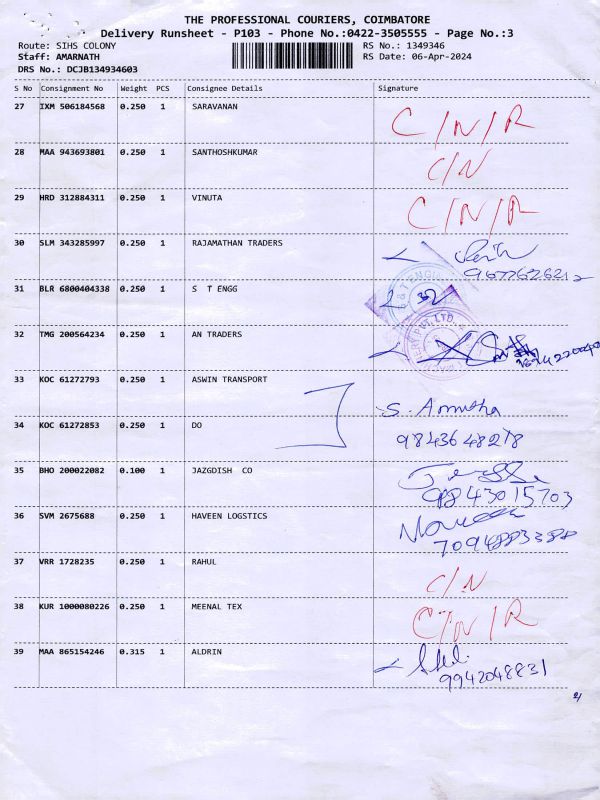 THE PROFESSIONAL COURIERS, COIMBATORE
Delivery Runsheet - P103 - Phone No.:0422-3505555 - Page No.:3
Route: SIHS COLONY RS No.: 1349346
Staff: AMARNATH RS Date: 06-Apr-2024
DRS No.: DCJB134934603
S No Consignment No Weight PCS Consignee Details Signature
27 IXM 506184568 0.250 1 SARAVANAN C/N/R
28 MAA 943693801 0.250 1 SANTHOSHKUMAR C/N
29 HRD 312884311 0.250 1 VINUTA C/N/R
30 SLM 343285997 0.250 1 RAJAMATHAN TRADERS
9677626212
31 BLR 6800404338 0.250 1 S T ENGG
32 TMG 200564234 0.250 1 AN TRADERS
PVT. LTD.
33 KOC 61272793 0.250 1 ASWIN TRANSPORT
S. Amutha
34 KOC 61272853 0.250 1 DO
9843648278
35 BHO 200022082 0.100 1 JAZGDISH CO
9843015703
36 SVM 2675688 0.250 1 HAVEEN LOGSTICS
7094883388
37 VRR 1728235 0.250 1 RAHUL C/N
38 KUR 1000080226 0.250 1 MEENAL TEX C/N/R
39 MAA 865154246 0.315 1 ALDRIN
9942048831